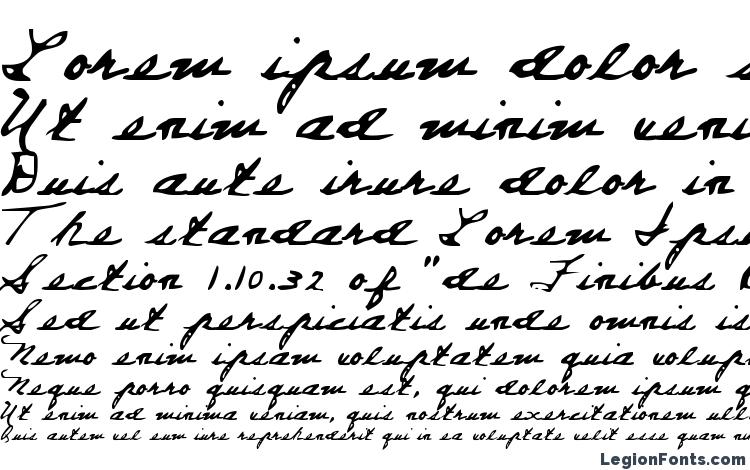 Lorem ipsum dolor s
Ut enim ad minim veni
Duis aute irure dolor in
The standard Lorem Ips
Section 1.10.32 of "de Finibus
Sed ut perspiciatis unde omnis is
Nemo enim ipsam voluptatem quia volup
Neque porro quisquam est, qui dolorem ipsum q
Ut enim ad minima veniam, quis nostrum exercitationem ull
Duis autem vel eum iure reprehenderit qui in ea voluptate velit esse quam nu
LegionFonts.com